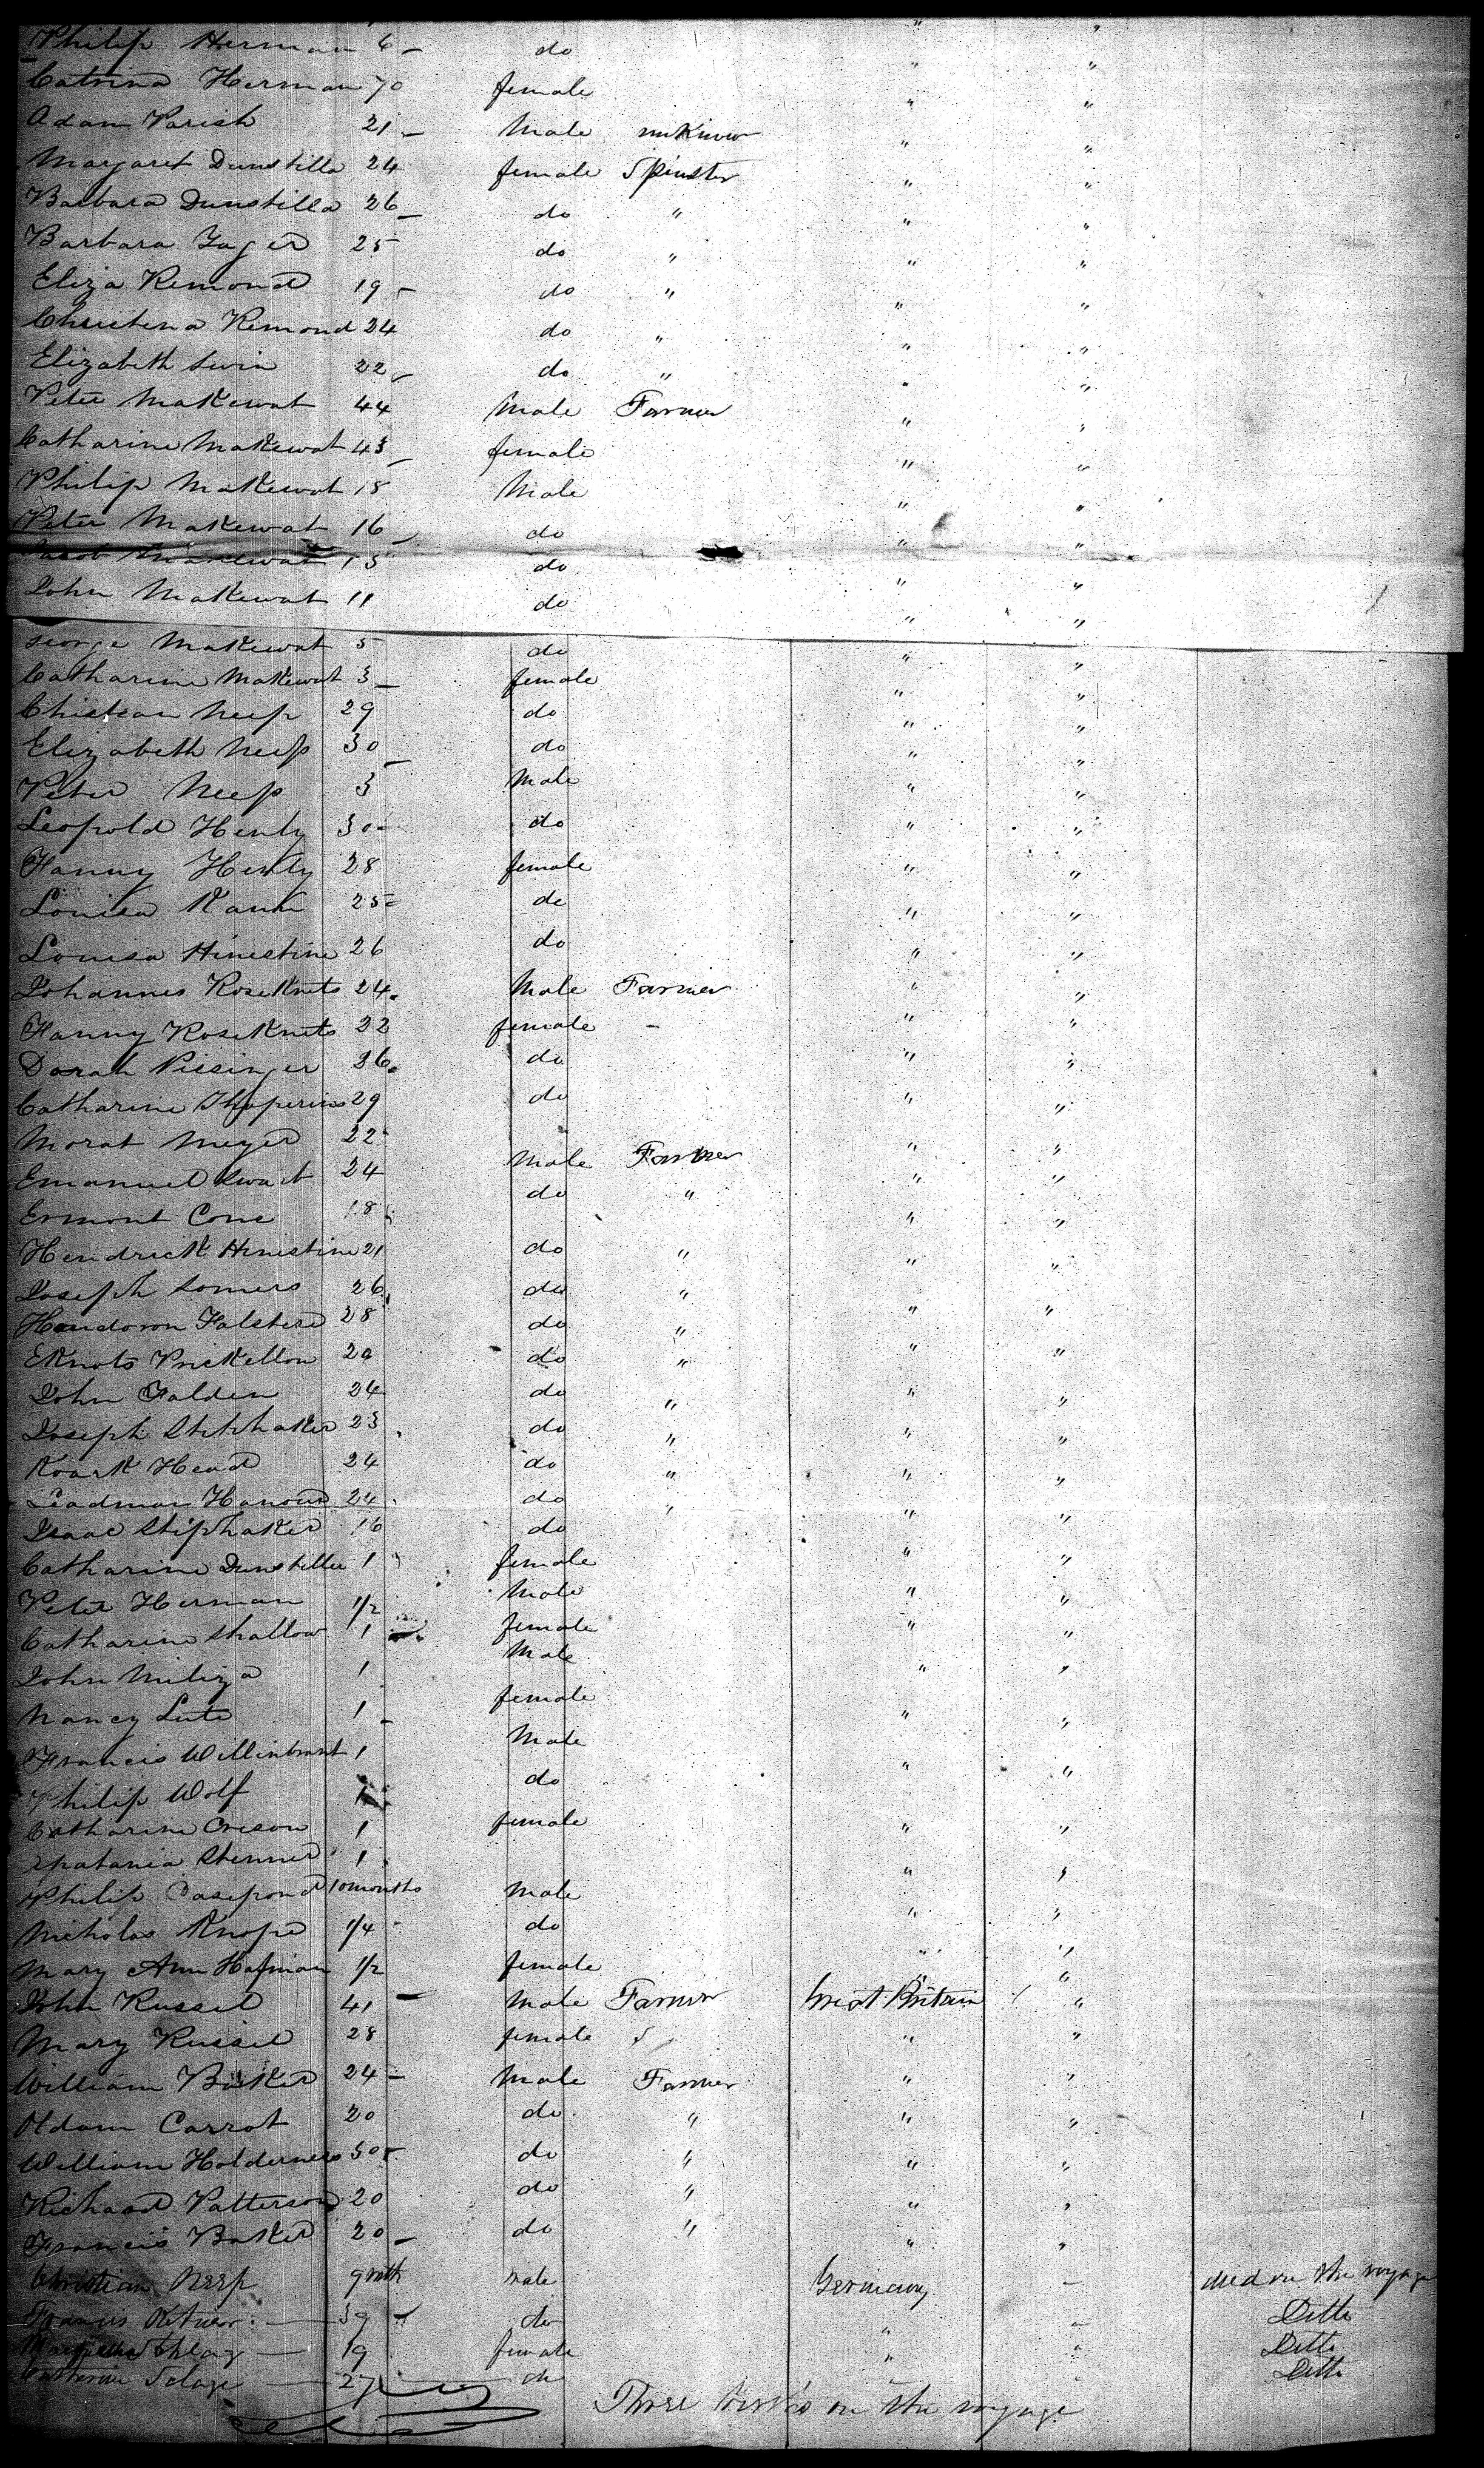 Philip Herman 6 - do " "
Catrina Herman 70 female " "
Adam Parish 21 - Male unknown " "
Margaret Dunstilla 24 female Spinster " "
Barbara Dunstilla 26 - do " " "
Barbara Zager 25 do " " "
Eliza Remond 19 - do " " "
Christena Remond 24 do " " "
Elizabeth Swin 22 - do " " "
Peter Makewat 44 Male Farmer " "
Catharine Makewat 43 - female " "
Philip Makewat 18 Male " "
Peter Makewat 16 - do " "
Jacob Makewat 13 do " "
John Makewat 11 do " "
George Makewat 5 do " "
Catharine Makewat 3 - female " "
Christean Neep 29 do " "
Elizabeth Neep 30 - do " "
Peter Neep 3 Male " "
Leopold Henly 30 - do " "
Fanny Henly 28 female " "
Louisa Kann 25 - do " "
Louisa Hinestine 26 do " "
Johannes Roseknets 24 Male Farmer " "
Fanny Roseknets 22 female - " "
Dorah Pissinger 26 do " "
Catharine 29 do " "
Morat Meyer 22 Male Farmer " "
Emanuel Swart 24 do " " "
Ermont Cone 18 " "
Hendrick Hinestine 21 do " " "
Joseph Somers 26 do " " "
Falsterd 28 do " " "
Eknots Prickellon do " " "
John Falden 24 do " " "
Joseph Stiphaker 23 do " " "
Roark Head 24 do " " "
Leadman Hanoun 24 do " " "
Isaac Stiphaker 16 do " "
Catharine Dunstiller 1 female " "
Peter Herman 1/2 Male " "
Catharine Shallow 1 female " "
John Miliza 1 Male " "
Nancy Lute 1 - female " "
Francis Willinbrant 1 Male " "
Philip Wolf 1 do
Catharine Creson 1 female " "
Stenner 1 " "
Philip 10 months Male " "
Nicholas Knope 1/4 do " "
Mary Ann Hofman 1/2 female " "
John Russel 41 - Male Farmer Great Britain "
Mary Russel 28 female " "
William Basker 24 - Male Farmer " "
Adam Carrot 20 do " " "
William Holderness 50 - do " " "
Richard Patterson 20 do " " "
Francis Basker 20 - do " " "
Christian Neep 9 mth male Germany - died on the voyage
Francis 39 - do " " Ditto
19 female " " Ditto
Catherine Solage 27 do Ditto
Three births on the voyage